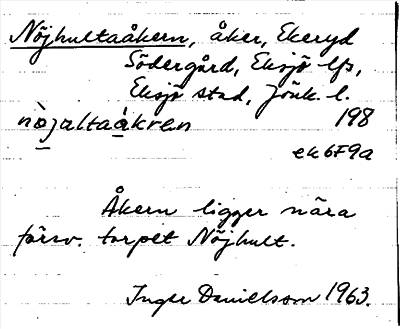 Nöjhultaåkern, åker, Ekeryd
Södergård, Eksjö lfs,
Eksjö stad, Jönk. l.
nòjaltaåkren 198
ek 6F9a
Åkern ligger nära
försv. torpet Nöjhult.
Inger Danielsson 1963.